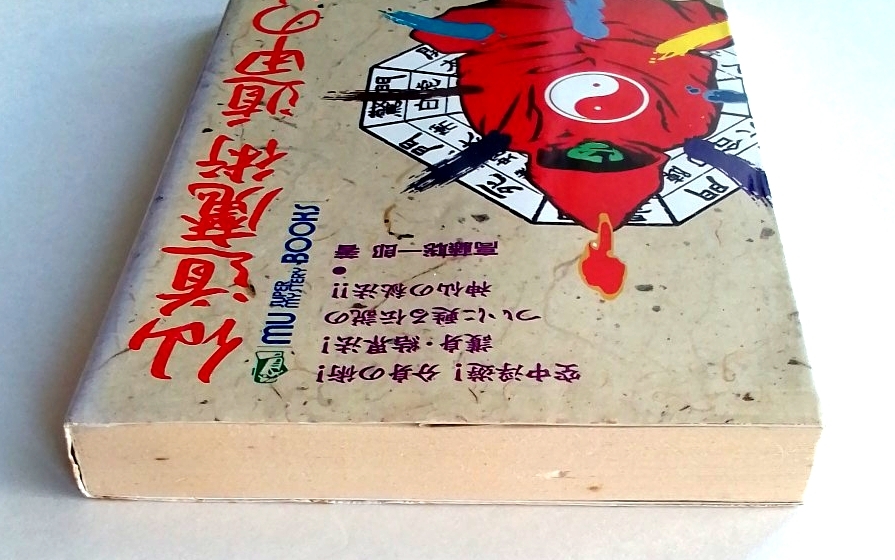 仙道魔術 遁甲の
MU SUPER MYSTERY BOOKS
空中浮遊！分身の術！
護身・結界法！
ついに甦る伝説の
神仙の秘法!!
●高藤聡一郎 著
死
門
門